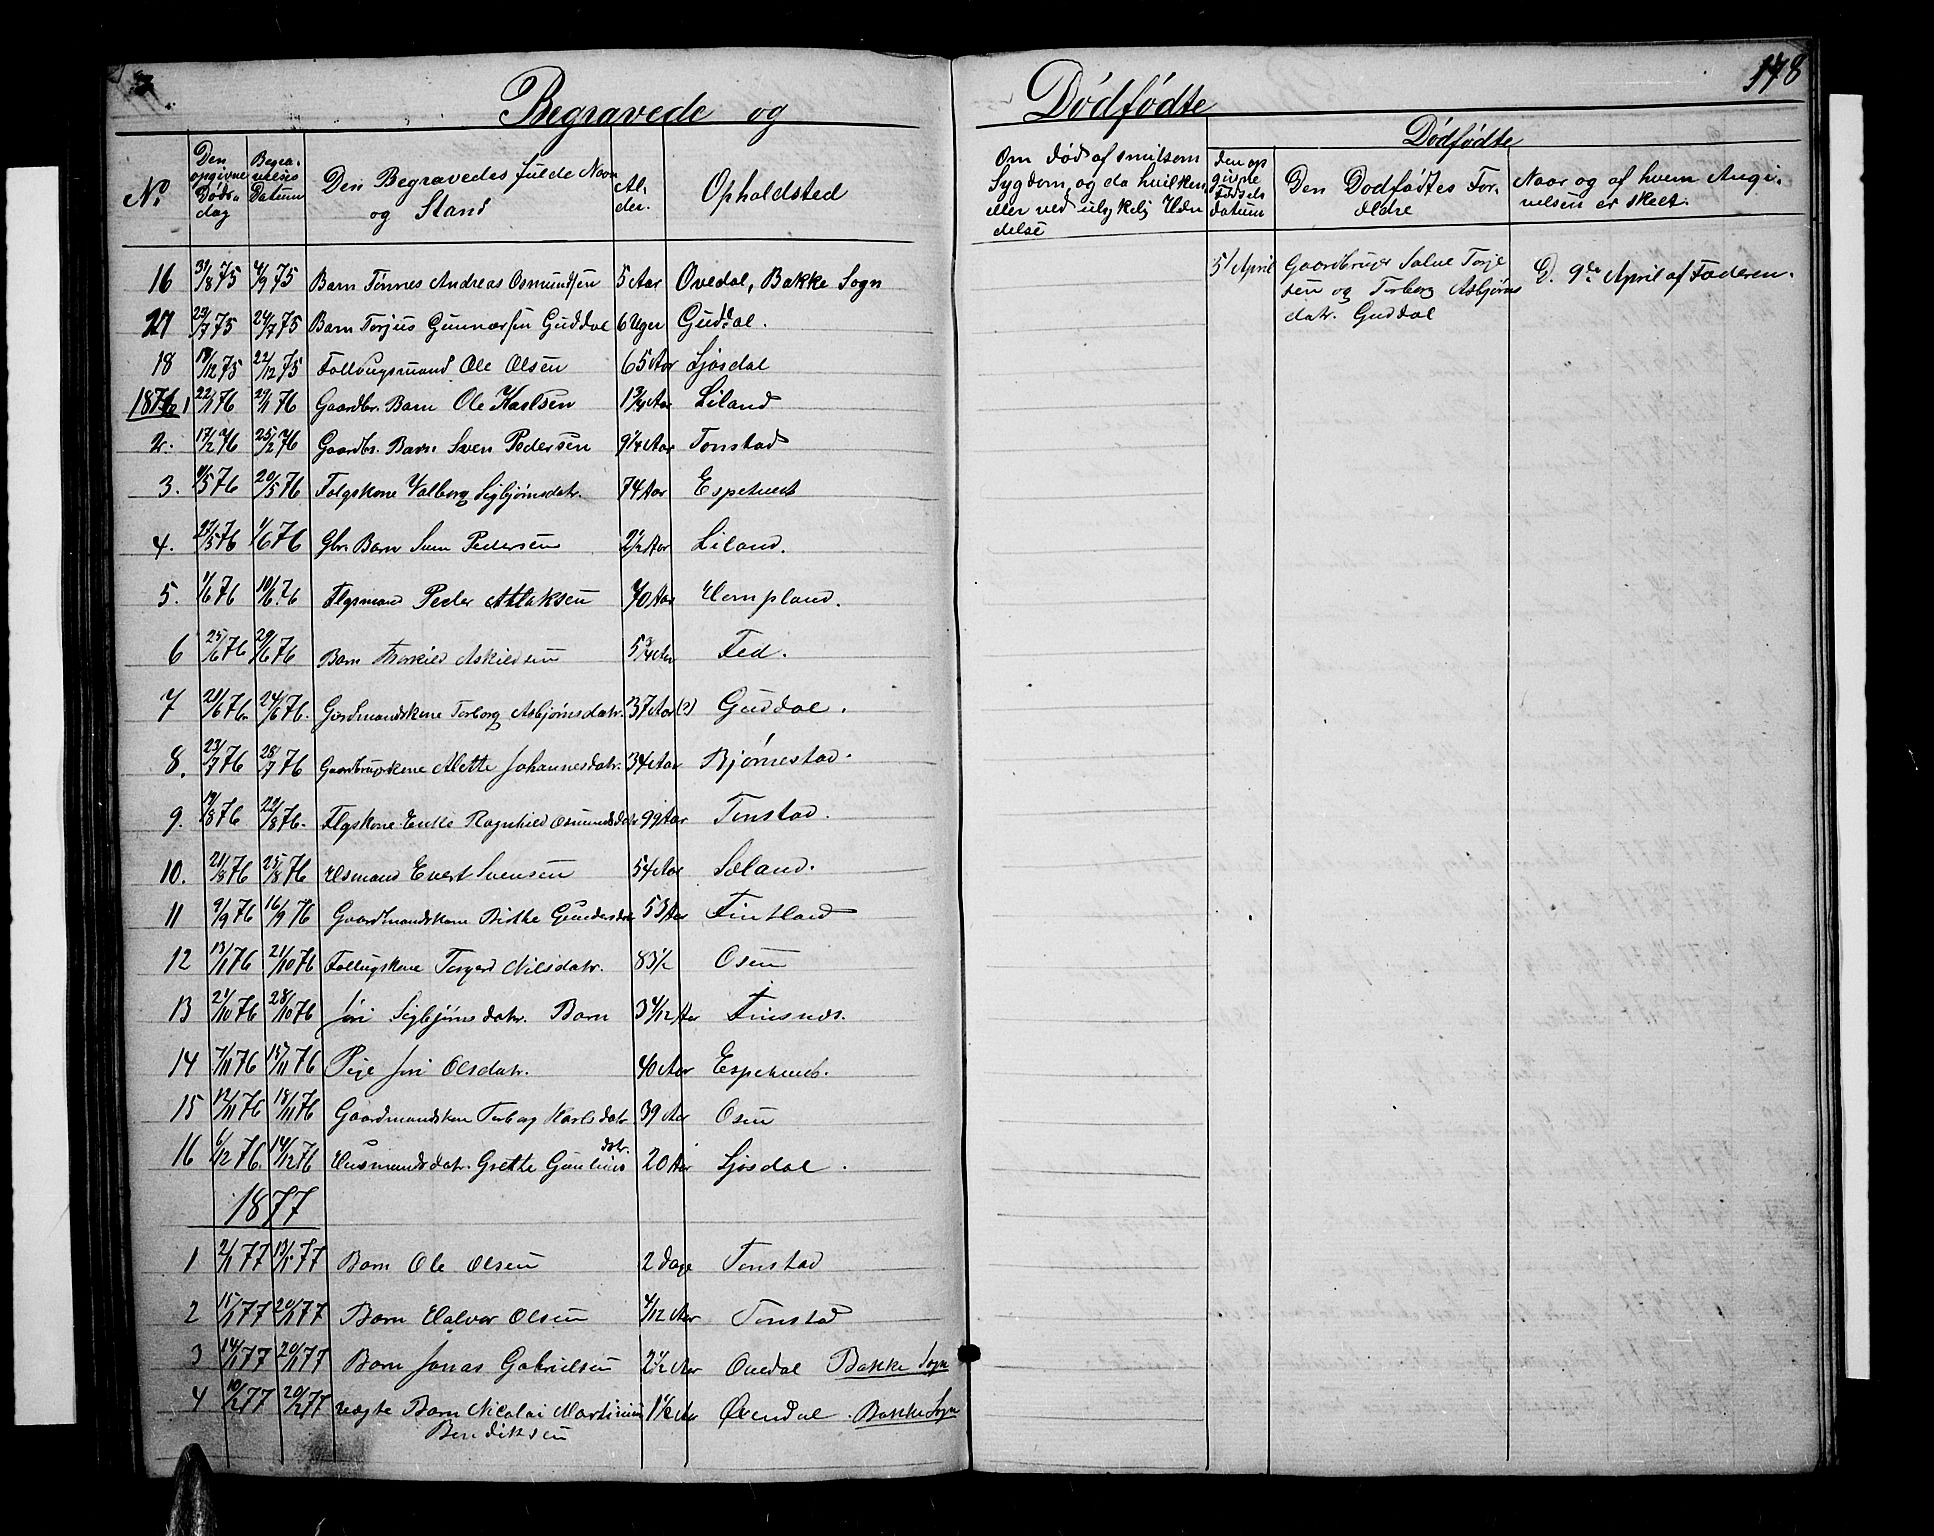 Begravede og Dødfødte
178
No
Den opgivne Døds-dag
Begra-velses Datum
Den Begravedes fulde Navn og Stand
Al-der.
Opholdsted
Om død af smitsom Sygdom, og da hvilken, eller ved ulykkelig Hændelse
Dødfødte
den op givne Fødsels datum
Den Dødfødtes For-ældre
Naar og af hvem Angi-velsen er skeet.
16 31/8 75 4/9 75 Barn Tønnes Andreas Osmundsen 5 Aar Ovedal, Bakke Sogn
5/ April Gaardbruger Salve Torje
sen og Torborg Asbjørns
datr. Guddal
9de April af Faderen.
17 75 24/7 75 Barn Torjus Gunnarsen Guddal 6 Uger Guddal.
18 75 22/12 75 Ole Olsen 65 Aar Sjøsdal
1876 1 22/1 76 29/1 76 Gaardbr. Barn Ole Karlsen 1 3/4 Aar Liland
2. 17/2 76 25/2 76 Gaardbr. Barn Sven Pedersen 9 1/4 Aar Tonstad
3. 76 20/5 76 Folgskone Valborg Sigbjørnsdatr. 74 Aar Espetveit
4. 27/5 76 1/6 76 Gbr. Barn Sven Pedersen 2 1/2 Aar Liland.
5. 1/6 76 10/6 76 Flgsmand Peder Atlaksen 70 Aar Hompland.
6 25/6 76 29/6 76 Barn Thorkild Askildsen 5 3/4 Aar Fed.
7 21/6 76 24/6 76. Gordmandskone Torborg Asbjørnsdatr. 37 Aar (?) Guddal.
8. 23/7 76 28/7 76 Gaardbrugskone Alette Johannesdatr. 34 Aar Bjørnestad.
9. 19/8 76 22/8 76. Flgskone Enke Ragnhild Osmundsdatr 99 Aar Tonstad.
10. 21/8 76 25/8 76 Evert Svensen 54 Aar Sæland.
11 9/9 76 16/9 76 Gaardmandskone Birthe Gundersdatr 53 Aar Fintland
12 13/ 76 21/10 76 Torger Nilsdatr. 83 1/2 Osen
13 21/10 76 28/10 76 Jøri Sigbjørnsdatr. Barn 3 4/12 Aar Finsnæs.
14 7/11 76 15/11 76 Pige Jøri Olsdatr. 40 Aar Espetveit.
15 12/11 76 18/11 76 Gaardmandskon Torborg Karlsdatr. 39 Aar Osen
16 6/12 76. 14/12 76 Husmandsdatr. Grethe datr. 20 Aar Sjøsdal.
1877
1 2/1 77 13/1 77 Barn Ole Olsen 2 Dage Tonstad
2 15/1 77 20/1 77 Barn Halvor Olsen 4/12 Aar Tonstad
3 14/1 77 20/1 77 Barn Jonas Gabrielsen 2 1/2 Aar Ovedal Bakke Sogn
4 10/2 77 20/2 77 uægte Barn Nicolai Martinius 1 1/2 Aar Øvendal. Bakke Sogn
Bendiksen